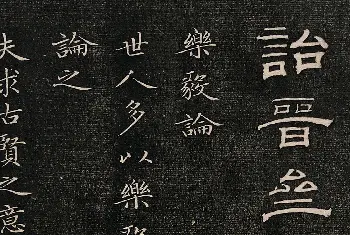 詒晉
樂毅論
世人多以樂
論之
夫求古賢之意